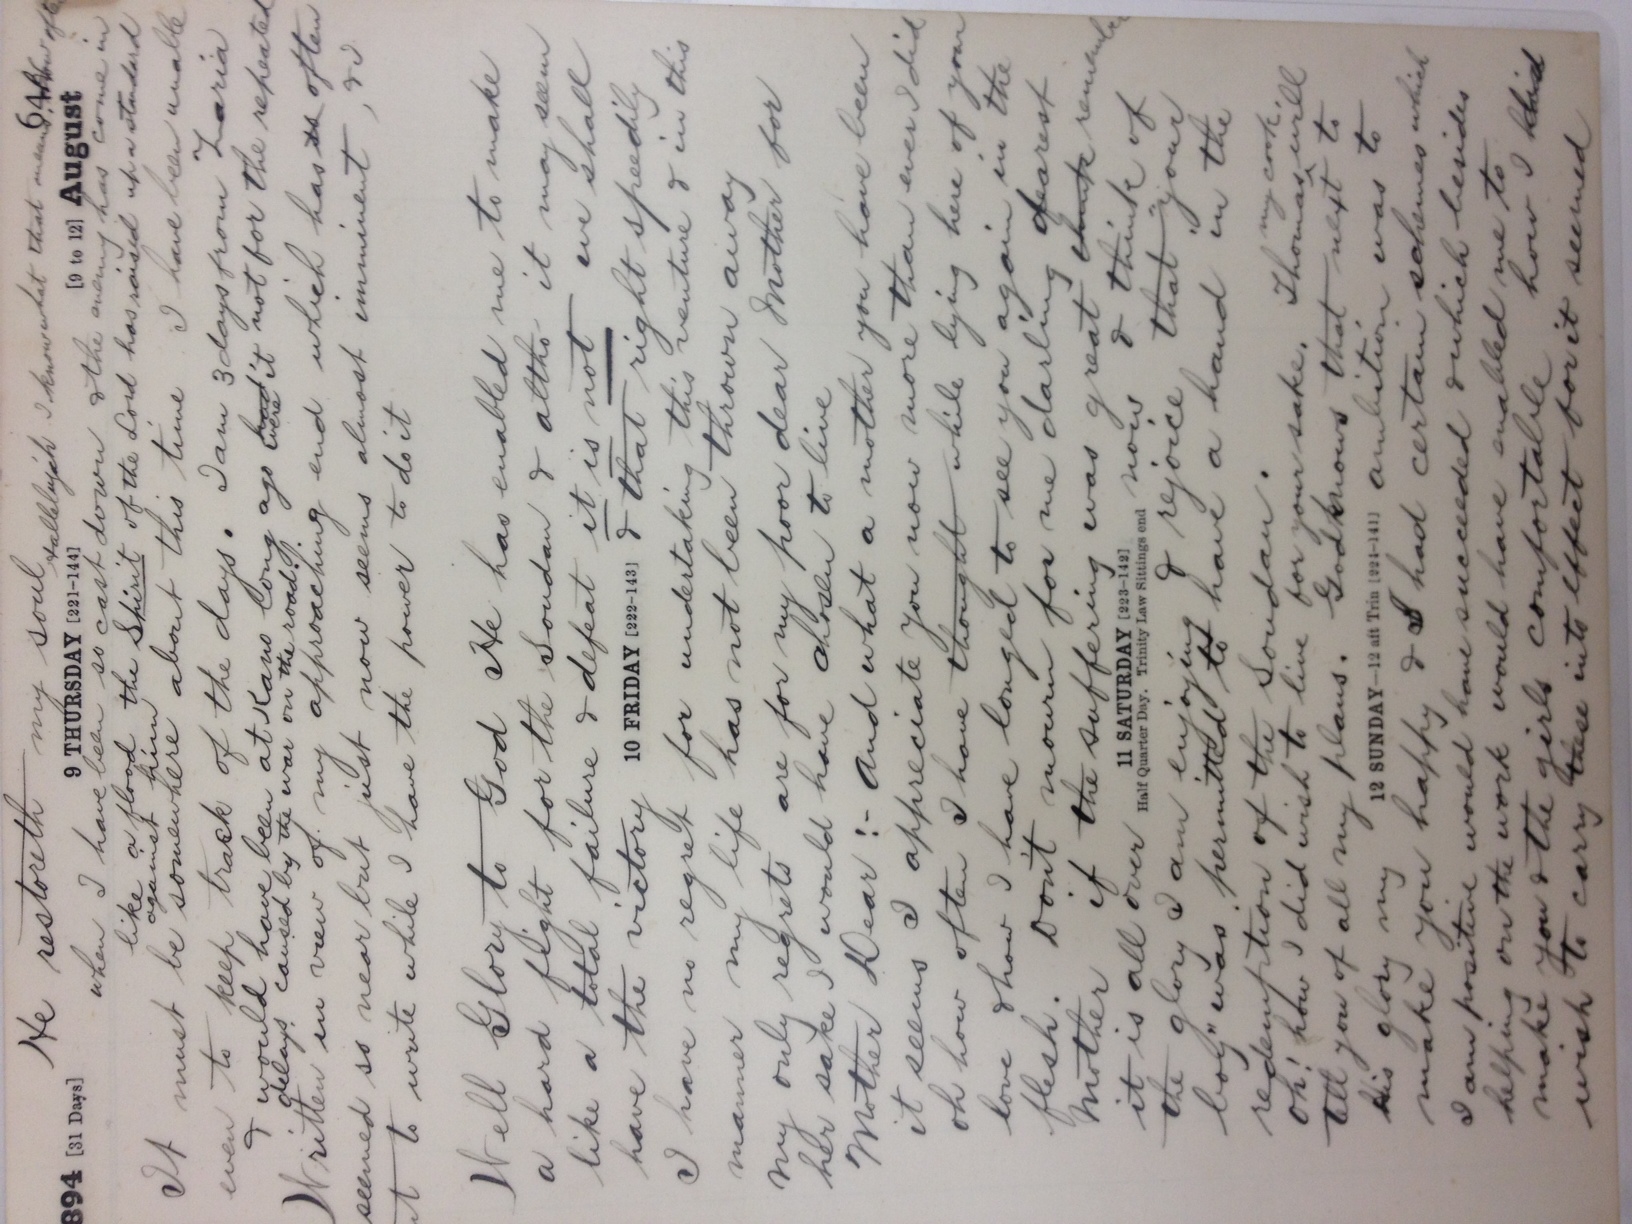 He restoreth my soul, Hallelujah I know what that means. 
1894 [31 Days] [9 to 12] August
9 THURSDAY [221-144]
when I have been so cast down & the enemy has come in
like a flood the Spirit of the Lord has raised up a standard
against him
It must be somewhere about this time I have been unable
even to keep track of the days. I am 3 days from Zaria
& would have been at Kano long ago had it not for the repeated
were
delays caused by the war on the road.
Written in view of my approaching end which has often
seemed so near but just now seems almost imminent, &
to write while I have the power to do it
Well Glory to God He has enabled me to make
a hard fight for the Soudan & altho it may seem
like a total failure & defeat it is not we shall
10 FRIDAY [222-143]
have the victory & that right speedily
I have no regret for undertaking this venture & in this
manner my life has not been thrown away
My only regrets are for my poor dear Mother for
her sake I would have chosen to live
"Mother Dear":- And what a mother you have been
it seems I appreciate you now more than ever I did
oh how often I have thought while lying here of your
love & how I have longed to see you again in the
flesh. Don't mourn for me darling dearest
Mother if the suffering was great remember
11 SATURDAY [223-142]
Half Quarter Day. Trinity Law Sittings end
it is all over now & think of
the glory I am enjoying & rejoice that "your
boy" was permitted to have a hand in the
redemption of the Soudan.
my cook
Oh! how I did wish to live for your sake. Thomas will
tell you of all my plans. God knows that next to
12 SUNDAY-12 aft Trin [224-141]
his glory my ambition was to
make you happy & I had certain schemes which
I am positive would have succeeded & which besides
helping on the work would have enabled me to
make you & the girls comfortable how I did
wish to carry these into effect for it seemed